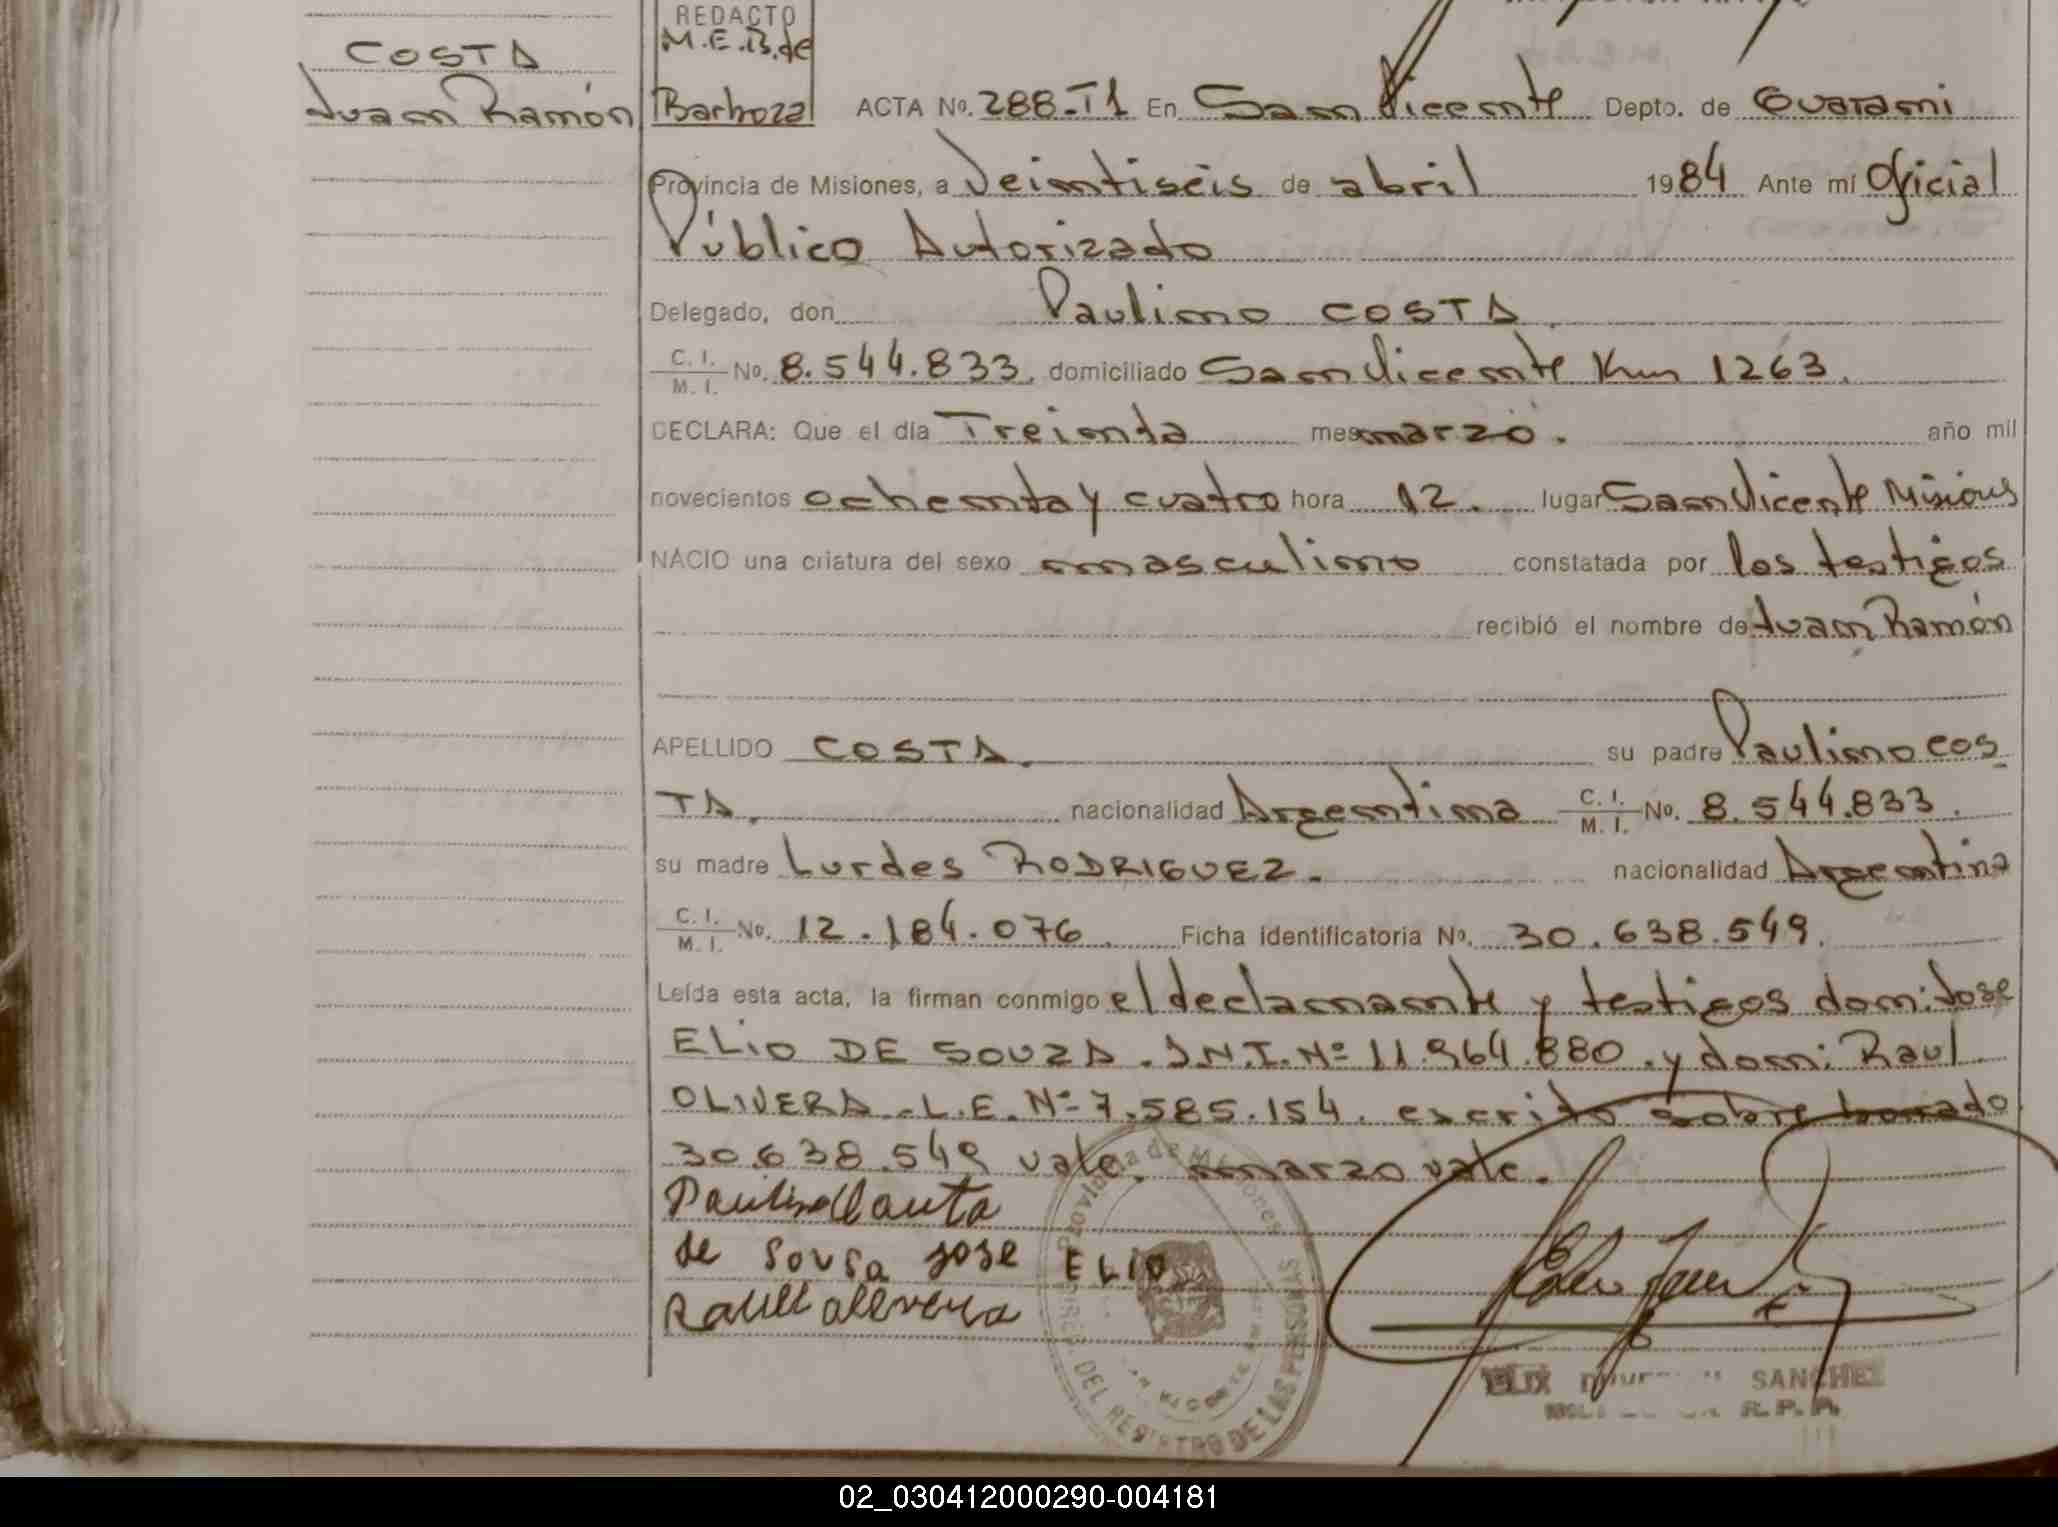 COSTA
Juan Ramón
REDACTO
M.E.B. de
Barboza
ACTA No. 288-T1 En San Vicente Depto. de Guarani
Provincia de Misiones, a Veintiseis de abril 1984 Ante mi Oficial
Público Autorizado
Delegado, don Paulino COSTA
C. I. / M. I. No. 8.544.833. domiciliado San Vicente Km 1263.
DECLARA: Que el día Treinta mes marzo. año mil
novecientos ochenta y cuatro hora 12. lugar San Vicente Misiones
NACIO una criatura del sexo masculino constatada por los testigos
recibió el nombre de Juan Ramón
APELLIDO COSTA. su padre Paulino COS
TA. nacionalidad Argentina C. I. / M. I. No. 8.544.833.
su madre Lurdes RODRIGUEZ. nacionalidad Argentina
C. I. / M. I. No. 12.184.076 Ficha identificatoria No. 30.638.549.
Leída esta acta, la firman conmigo el declarante y testigos don: Jose
ELiO DE SOUZA. D.N.I. Nº 11.964.880. y don: Raul
OLIVERA. L.E. Nº 7.585.154. escrito sobre borrado
30.638.549 vale. marzo vale.
de Sousa Jose ELIO
Provincia de Misiones
DEL REGISTRO DE LAS PERSONAS
SANCHEZ
R.P.P.
02_030412000290-004181